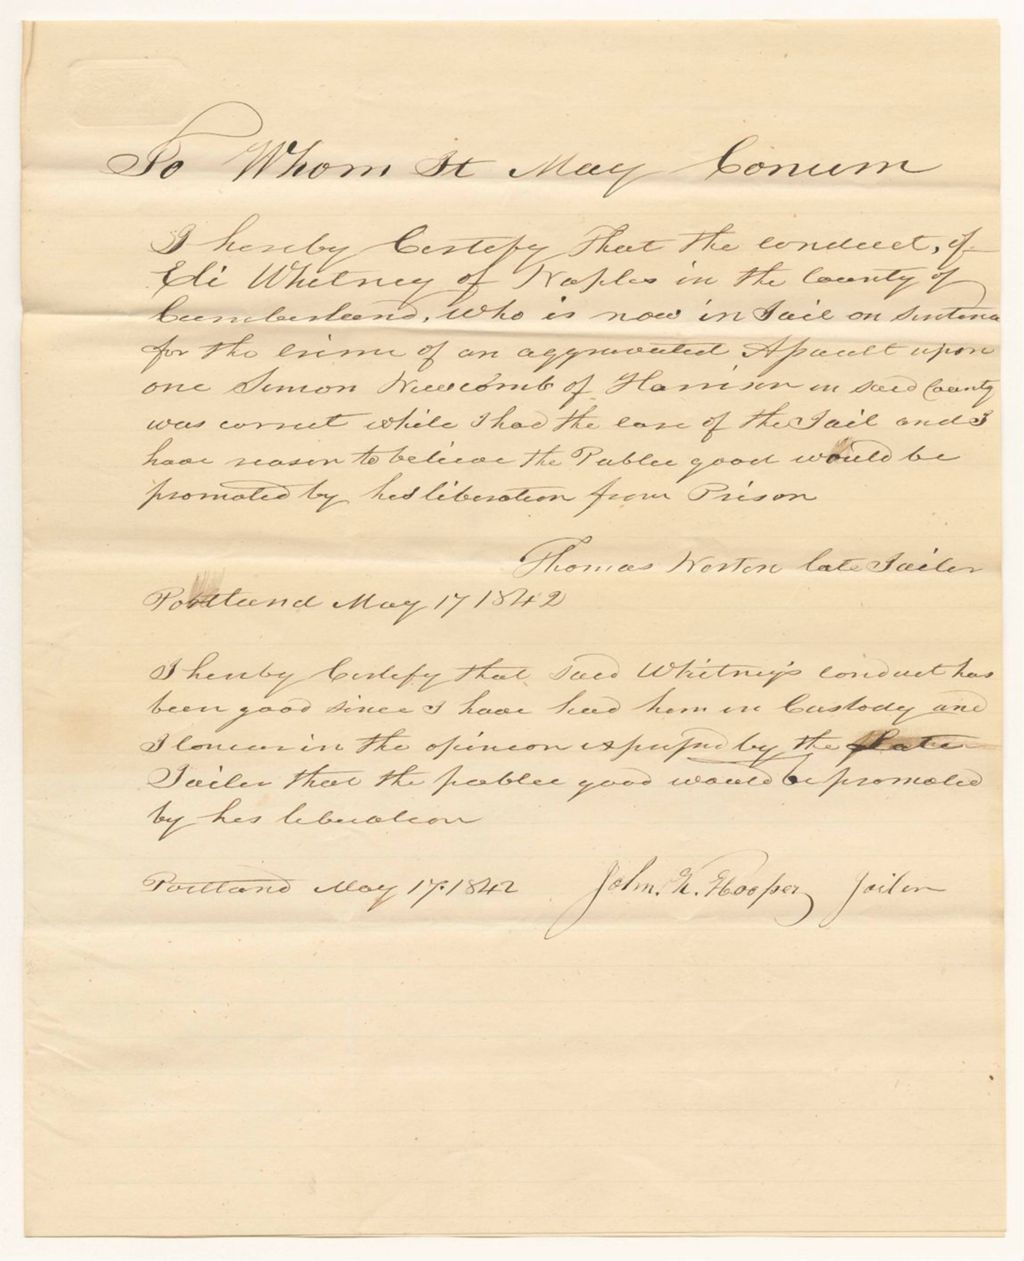 To Whom It May Conurn
I hereby Certefy That the conduct, of
Eli Whitney of Naples in the County of
Cumberland, who is now in Jail on sentence
for the crime of an aggravated Assault upon
one Simon Newcomb of Harrison in said County
was correct while I had the care of the Jail and I
have reason to believe the Public good would be
promoted by his liberation from Prison
Thomas Norton late Jailer
Portland May 17 1842
I hereby Certefy that said Whitney's conduct has
been good since I have had him in Custody and
I concur in the opinion expressed by the late
Jailer that the public good would be promoted
by his liberation
Portland May 17. 1842 John. H. Hooper Jailer